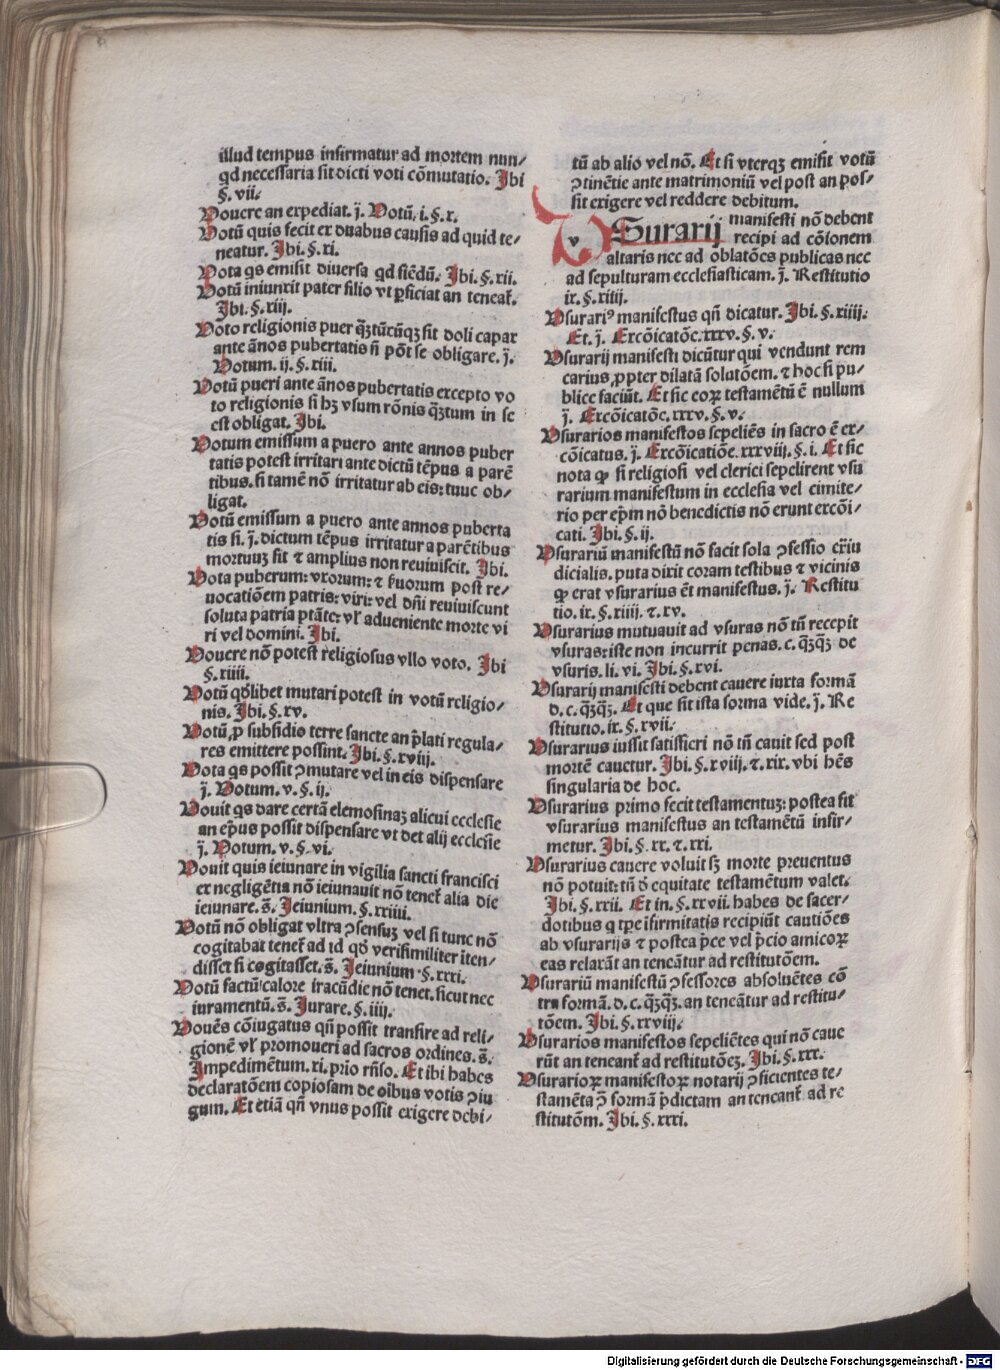 illud tempus infirmatur ad mortem nun/
qd necessaria sit dicti voti cōmutatio. Ibi
§. vii.
Vouere an expediat. j̄. Votū. i. §. x.
Votū quis fecit ex duabus causis ad quid te/
neatur. Ibi. §. xi.
Vota qs emisit diuersa qd fiēdū. Ibi. §. xii.
Votū iniunxit pater filio vt ꝑficiat an teneat̄.
Ibi. §. xiij.
Voto religionis puer q̄ꝫtūcūqꝫ sit doli capax
ante ānos pubertatis ñ pōt se obligare. j̄.
Votum. ij. §. xiii.
Votū pueri ante ānos pubertatis excepto vo
to religionis si hꝫ vsum rōnis q̄ꝫtum in se
est obligat. Ibi.
Votum emissum a puero ante annos puber
tatis potest irritari ante dictū tēpus a parē
tibus. si tamē nō irritatur ab eis: tuuc ob/
ligat.
Votū emissum a puero ante annos puberta
tis si. j̄. dictum tēpus irritatur a parētibus
mortuuꝫ sit ⁊ amplius non reuiuiscit. Ibi.
Vota puberum: vxorum: ⁊ ẜuorum post re/
uocatiōem patris: viri: vel dn̄i reuiuiscunt
soluta patria ptāte: vl̄ adueniente morte vi
ri vel domini. Ibi.
Vouere nō potest religiosus vllo voto. Ibi
§. xiiii.
Votū qdlibet mutari potest in votū religio/
nis. Ibi. §. xv.
Votū ꝓ subsidio terre sancte an p̄lati regula/
res emittere possint. Ibi. §. xviij.
Vota qs possit ꝯmutare vel in eis dispensare
j̄. Votum. v. §. ij.
Vouit qs dare certā elemosinaꝫ alicui ecclesie
an ep̄us possit dispensare vt det alij ecclesie
j̄. Votum. v. §. vi.
Vouit quis ieiunare in vigilia sancti francisci
ex negligētia nō ieiunauit nō tenet̄ alia die
ieiunare. s̄. Ieiunium. §. xxiiii.
Votū nō obligat vltra ꝯsensuꝫ vel si tunc nō
cogitabat tenet̄ ad id qd̄ verisimiliter iten/
disset si cogitasset. s̄. Ieiunium. §. xxxi.
Votū factū calore iracūdie nō tenet. sicut nec
iuramentū. s̄. Iurare. §. iiij.
Vouēs cōiugatus qñ possit transire ad reli/
gionē vl̄ promoueri ad sacros ordines. s̄.
Impedimētum. xi. prio rn̄so. Et ibi habes
declaratōem copiosam de oībus votis ꝯiu
gum. Et etiā qñ vnus possit exigere debi/
tū ab alio vel nō. Et si vterqꝫ emisit votū
ꝯtinētie ante matrimoniū vel post an pos/
sit exigere vel reddere debitum.
v Surarij manifesti nō debent
recipi ad cōionem
altaris nec ad oblatōes publicas nec
ad sepulturam ecclesiasticam. j̄. Restitutio
ix. §. xiiij.
Vsurariꝰ manifestus qñ dicatur. Ibi. §. xiiii.
Et. j̄. Excōicatōe. xxxv. §. v.
Vsurarij manifesti dicūtur qui vendunt rem
carius ꝓpter dilatā solutōem. ⁊ hoc si pu/
blice faciūt. Et sic eoꝝ testamētū ē nullum
j̄. Excōicatōe. xxxv. §. v.
Vsurarios manifestos sepeliēs in sacro ē ex/
cōicatus. j̄. Excōicatiōe. xxxviij. §. i. Et sic
nota ꝙ si religiosi vel clerici sepelirent vsu
rarium manifestum in ecclesia vel cimite/
rio per ep̄m nō benedictis nō erunt excōi/
cati. Ibi. §. ij.
Vsurariū manifestū nō facit sola ꝯfessio ex̄iu
dicialis. puta dixit coram testibus ⁊ vicinis
ꝙ erat vsurarius ēt manifestus. j̄. Restitu
tio. ix. §. xiiij. ⁊. xv.
Vsurarius mutuauit ad vsuras nō tn̄ recepit
vsuras: iste non incurrit penas. c. q̄ꝫq̄ꝫ de
vsuris. li. vi. Ibi. §. xvi.
Vsurarij manifesti debent cauere iuxta formā
d. c. q̄ꝫq̄ꝫ. Et que sit ista forma vide. j̄. Re
stitutio. ix. §. xvii.
Vsurarius iussit satisfieri nō tn̄ cauit sed post
mortē cauetur. Ibi. §. xviij. ⁊. xix. vbi hēs
singularia de hoc.
Vsurarius primo fecit testamentuꝫ: postea fit
vsurarius manifestus an testamētū infir/
metur. Ibi. §. xx. ⁊. xxi.
Vsurarius cauere voluit sꝫ morte preuentus
nō potuit: tn̄ d̄ equitate testamētum valet.
Ibi. §. xxii. Et in. §. xxvii. habes de sacer/
dotibus q tp̄e īfirmitatis recipiūt cautiōes
ab vsurarijs ⁊ postea p̄ce vel p̄cio amicoꝝ
eas relaxāt an tencātur ad restitutōem.
Vsurariū manifestū ꝯfessores absoluētes cō
tra formā. d. c. q̄ꝫq̄ꝫ. an teneātur ad restitu/
tōem. Ibi. §. xxviij.
Vsurarios manifestos sepeliētes qui nō caue
rūt an teneant̄ ad restitutōeꝫ. Ibi. §. xxx.
Vsurarioꝝ manifestoꝝ notarij ꝯficientes te/
stamēta ꝯ̄ formā p̄dictam an teneant̄ ad re
stitutōm. Ibi. §. xxxi.
Digitalisierung gefördert durch die Deutsche Forschungsgemeinschaft - DFG